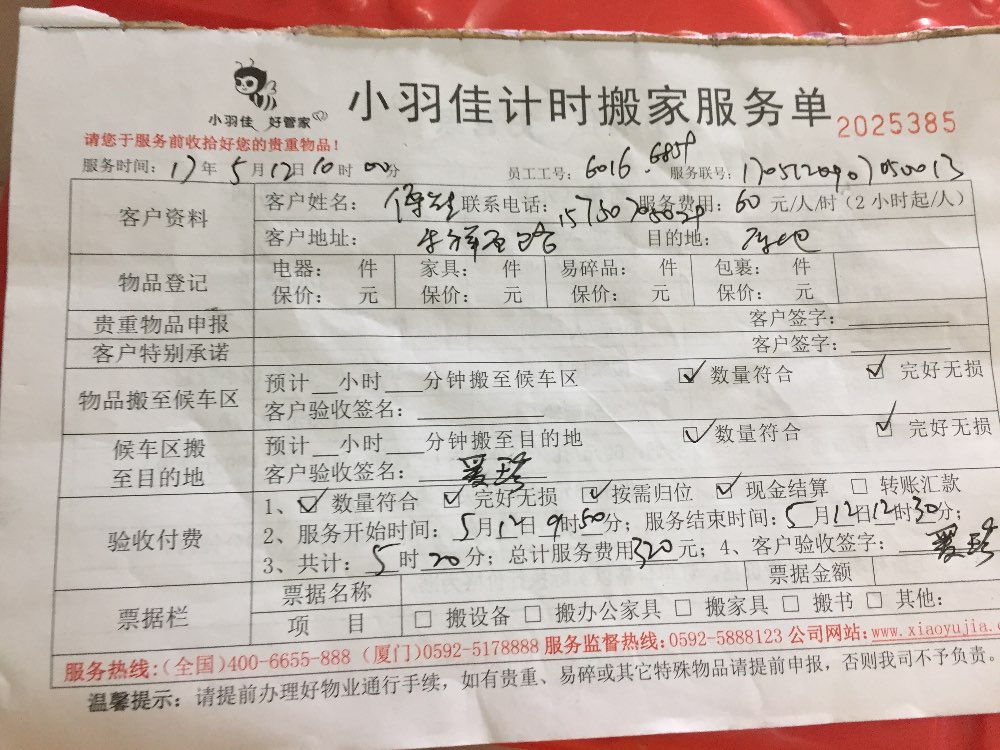 小羽佳 好管家
小羽佳计时搬家服务单
2025385
请您于服务前收拾好您的贵重物品！
服务时间：17年5月12日10时00分 员工工号：6016.6858 服务联号：
客户资料
客户姓名： 联系电话： 服务费用：60元/人/时（2小时起/人）
客户地址： 目的地：
物品登记
电器： 件 家具： 件 易碎品： 件 包裹： 件
保价： 元 保价： 元 保价： 元 保价： 元
贵重物品申报 客户签字：
客户特别承诺 客户签字：
物品搬至候车区
预计__小时___分钟搬至候车区 ☑数量符合 ☑完好无损
客户验收签名：
候车区搬至目的地
预计__小时___分钟搬至目的地 ☑数量符合 ☑完好无损
客户验收签名：
验收付费
1、☑数量符合 ☑完好无损 ☑按需归位 ☑现金结算 □转账汇款
2、服务开始时间：5月12日9时50分；服务结束时间：5月12日12时30分；
3、共计：5时20分；总计服务费用320元；4、客户验收签字：
票据栏
票据名称 票据金额
项 目 □搬设备 □搬办公家具 □搬家具 □搬书 □其他：
服务热线：（全国）400-6655-888（厦门）0592-5178888 服务监督热线：0592-5888123 公司网站：www.xiaoyujia.
温馨提示：请提前办理好物业通行手续，如有贵重、易碎或其它特殊物品请提前申报，否则我司不予负责。